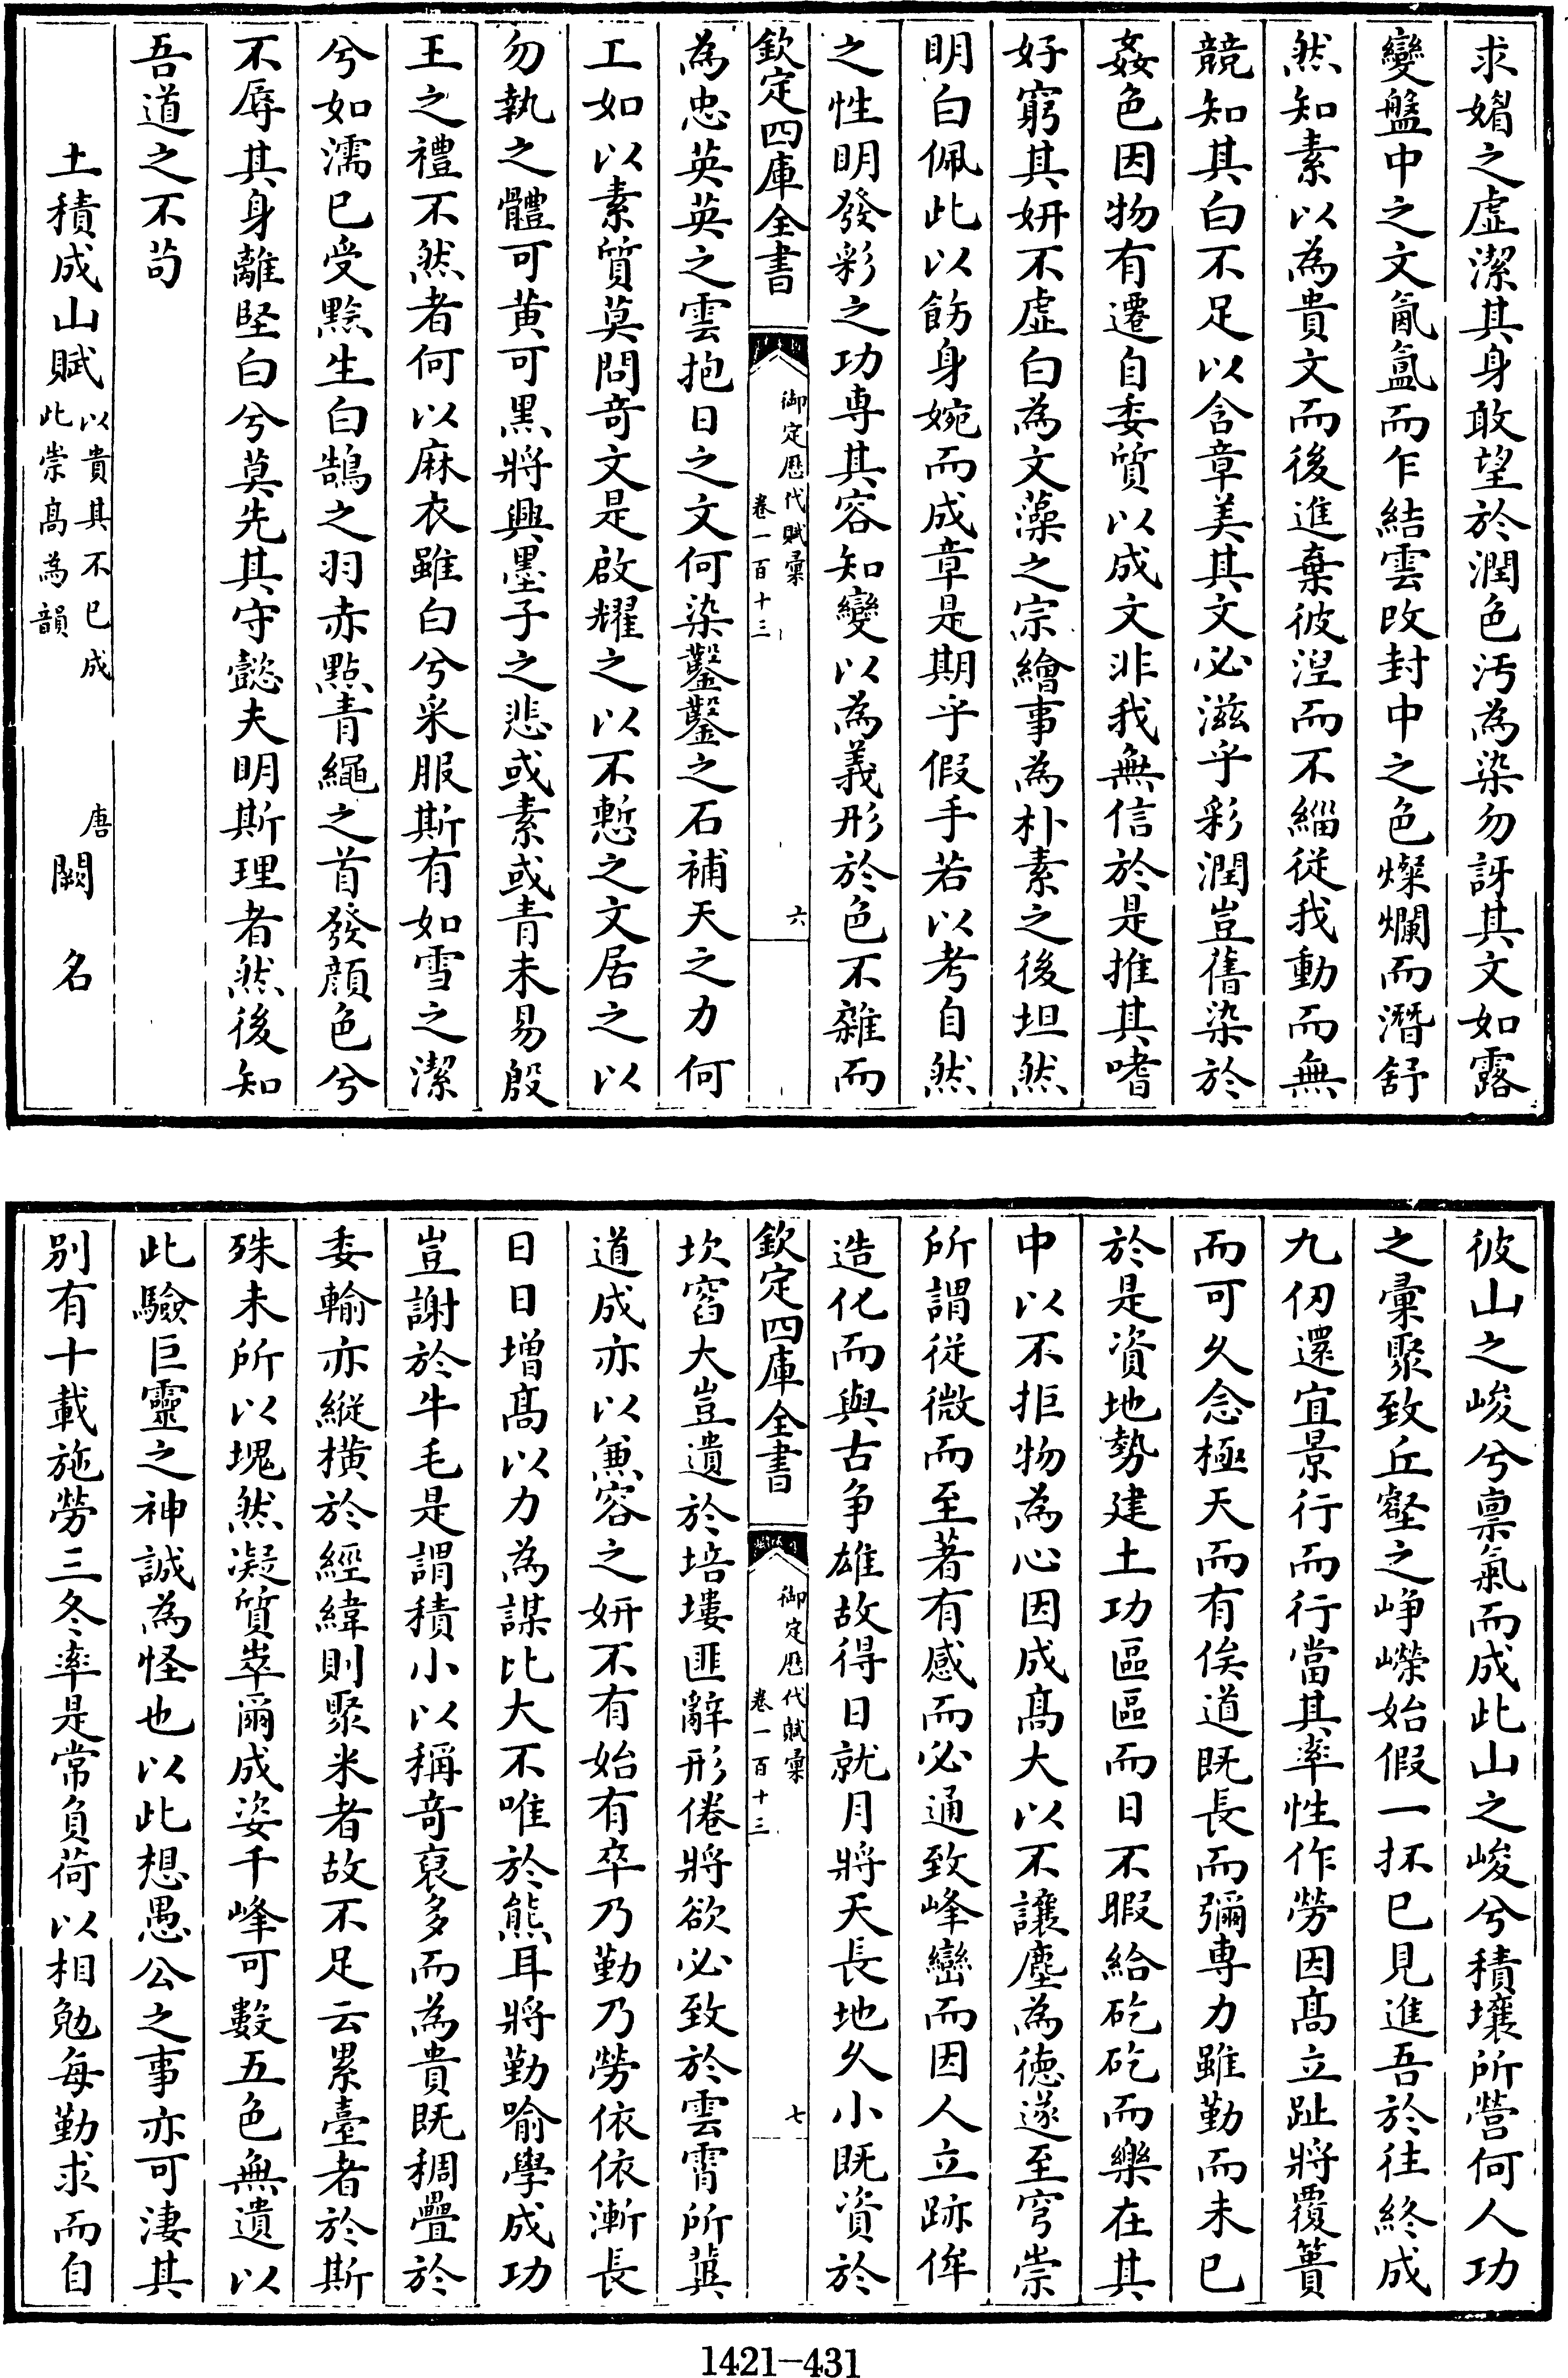 求媚之虛潔其身敢望於潤色汚為染勿訝其文如露
變盤中之文氤氳而乍結雲改封中之色燦爛而潛舒
然知素以為貴文而後進棄彼涅而不緇從我動而無
競知其白不足以含章美其文必滋乎彩潤豈舊染於
姦色因物有遷自委質以成文非我無信於是推其嗜
好窮其妍不虛白為文藻之宗繪事為朴素之後坦然
明白佩此以飭身婉而成章是期乎假手若以考自然
之性明發彩之功專其容知變以為義形於色不雜而
欽定四庫全書
御定歷代賦彙
卷一百十三
六
為忠英英之雲抱日之文何染鑿鑿之石補天之力何
工如以素質莫問竒文是啟耀之以不慙之文居之以
勿執之體可黄可黑將興墨子之悲或素或青未易殷
王之禮不然者何以麻衣雖白兮采服斯有如雪之潔
兮如濡已受黥生白鵠之羽赤點青繩之首發顔色兮
不辱其身離堅白兮莫先其守懿夫明斯理者然後知
吾道之不茍
土積成山賦
以貴其不已成
此崇髙為韻
唐
闕名
彼山之峻兮禀氣而成此山之峻兮積壤所營何人功
之彚聚致丘壑之崢嶸始假一抔已見進吾於往終成
九仞還宜景行而行當其率性作勞因髙立趾將覆簣
而可久念極天而有俟道既長而彌専力雖勤而未已
於是資地勢建土功區區而日不暇給矻矻而樂在其
中以不拒物為心因成髙大以不讓塵為徳遂至穹崇
所謂從微而至著有感而必通致峰巒而因人立跡侔
造化而與古争雄故得日就月將天長地久小既資於
欽定四庫全書
御定歷代賦彙
卷一百十三
七
坎窞大豈遺於培塿匪辭形倦將欲必致於雲霄所冀
道成亦以兼容之妍不有始有卒乃勤乃勞依依漸長
日日增髙以力為謀比大不唯於熊耳將勤喻學成功
豈謝於牛毛是謂積小以稱竒裒多而為貴既稠疊於
委輸亦縱横於經緯則聚米者故不足云累臺者於斯
殊未所以塊然凝質崒爾成姿千峰可數五色無遺以
此驗巨靈之神誠為怪也以此想愚公之事亦可淒其
别有十載施勞三冬率是常負荷以相勉每勤求而自
1421-431